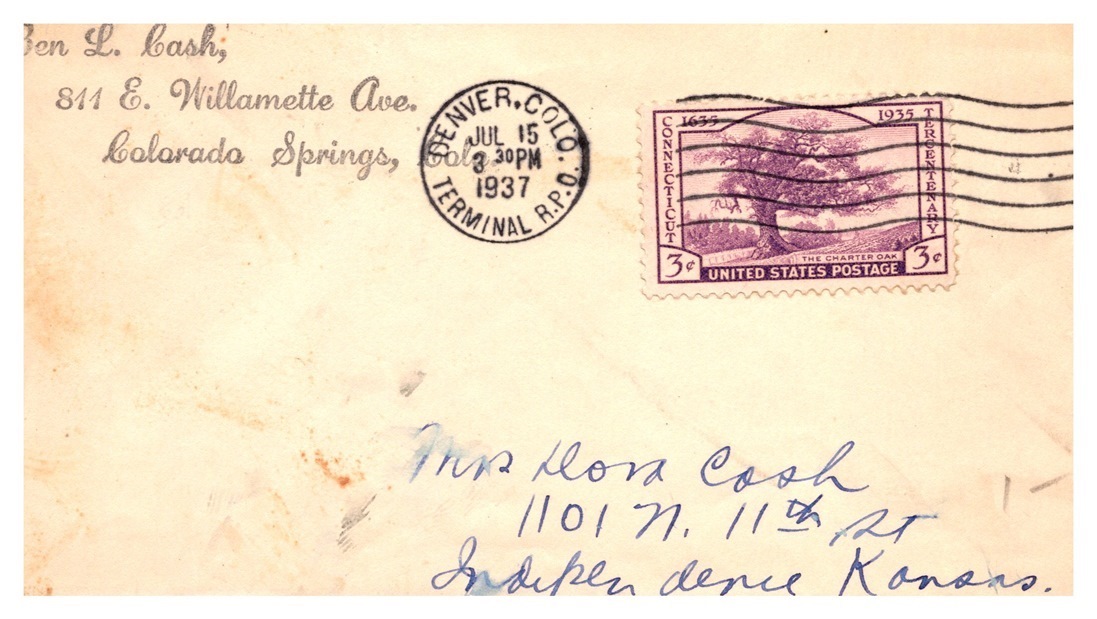 Ben L. Cash,
811 E. Willamette Ave.
Colorado Springs, Colo.
DENVER, COLO.
JUL 15
3 30 PM
1937
TERMINAL R.P.O.
1635 1935
CONNECTICUT
TERCENTENARY
THE CHARTER OAK
3¢ UNITED STATES POSTAGE 3¢
Mrs Dora Cash
1101 N. 11th St
Independence Kansas.